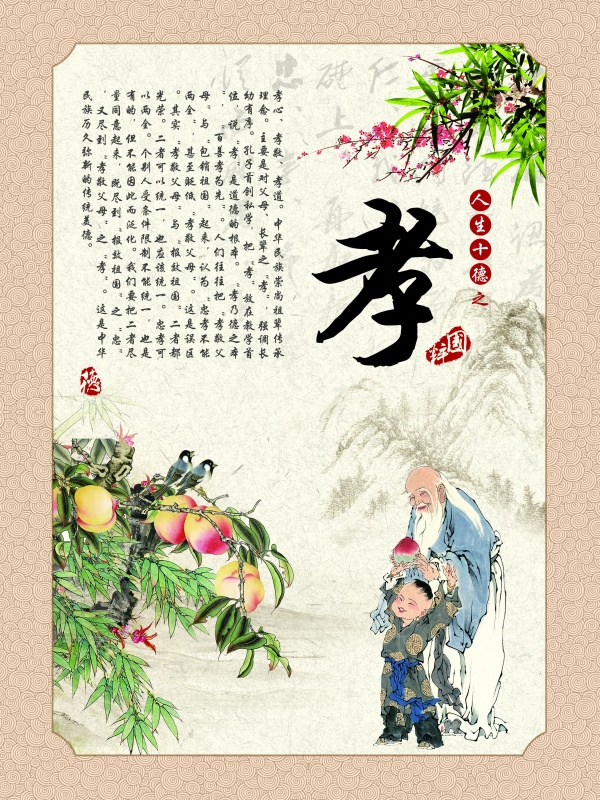 人生十德之
孝
国粹
孝心、孝敬、孝道。中华民族崇尚祖辈传承
理念。主要是对父母、长辈之“孝”。强调长
幼有序。孔子首创私学，把“孝”放在教学首
位，说“孝”是道德的根本。“孝乃德之本
”，“百善孝为先”。人们往往把“孝敬父
母。与“包销祖国”起来，认为“忠孝不能
两全”，甚至贬低“孝敬父母”。这是误区
。其实“孝敬父母”与“报效祖国”二者都
光荣。二者可以统一，也应该统一。忠孝可
以两全。个别人受条件限制不能统一，也是
有的，但不能因此而泛化。我们要把二者尽
量同意起来，既尽到“报效祖国”之“忠”
，又尽到“孝敬父母”之“孝”。这是中华
民族历久弥新的传统美德。
德